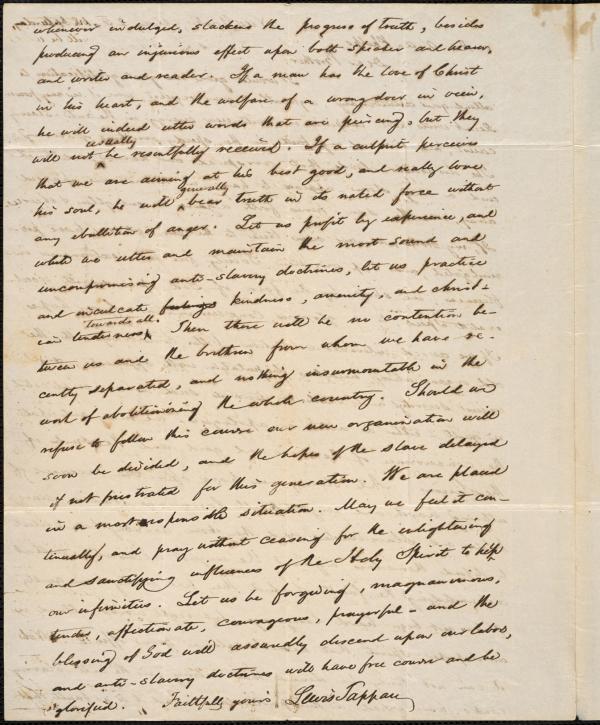 whenever indulged, slackens the progress of truth, besides
producing an injurious effect upon both speaker and hearer,
and writer and reader. If a man has the love of Christ
in his heart, and the welfare of a wrong doer in view,
he will indeed utter words that are piercing, but they
usually
will not be resentfully received. If a culprit perceives
that we are aiming at his best good, and really love
generally
his soul, he will bear truth in its naked force without
any ebullition of anger. Let us profit by experience, and
while we utter and maintain the most sound and
uncompromising anti-slavery doctrines, let us practice
and inculcate feelings kindness, amenity, and christ-
towards all.
ian tenderness. Then there will be no contention be-
tween us and the brethren from whom we have re-
cently separated, and nothing insurmountable in the
work of abolitionizing the whole country. Should we
refuse to follow this course our new organization will
soon be divided, and the hopes of the slave delayed
if not frustrated for this generation. We are placed
in a most responsible situation. May we feel it con-
tinually, and pray without ceasing for the enlightening
and sanctifying influences of the Holy Spirit to help
our infirmities. Let us be forgiving, magnanimous,
tender, affectionate, courageous, prayerful - and the
blessing of God will assuredly descend upon our labors,
and anti-slavery doctrines will have free course and be
glorified. Faithfully yours Lewis Tappan